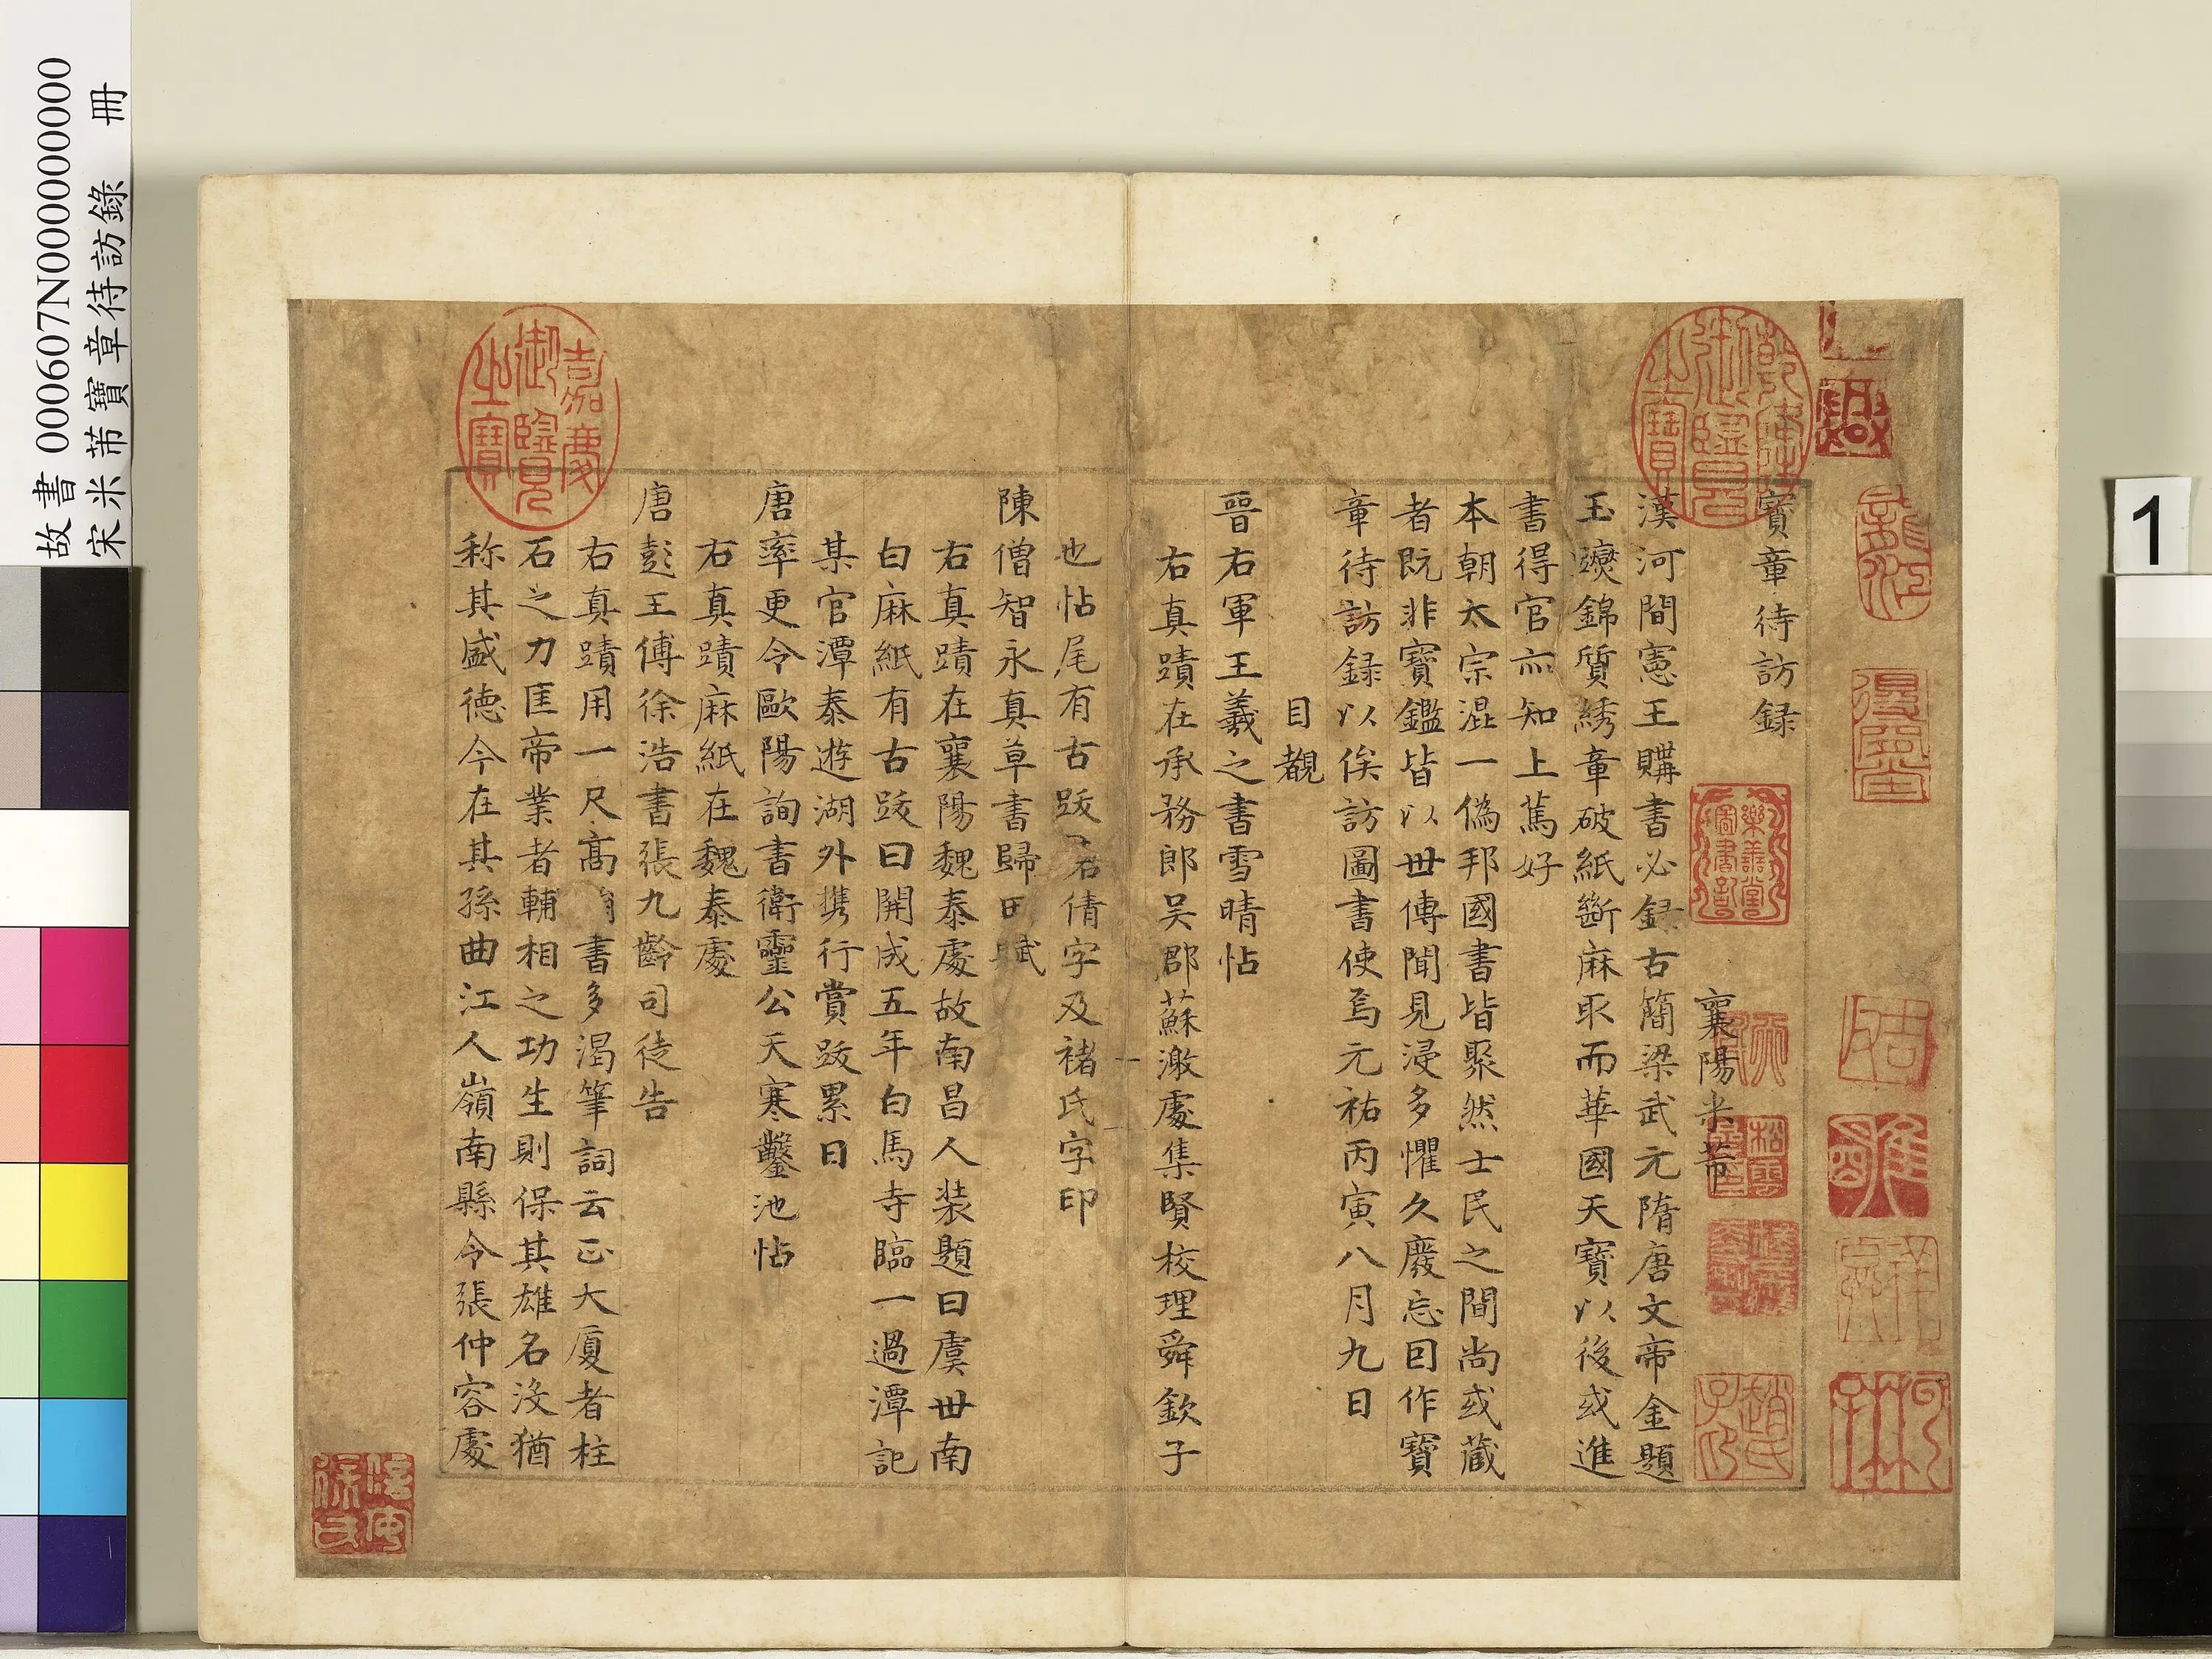 故書 000607N000000000
宋米芾寶章待訪錄 冊
1
寶章待訪録
襄陽米芾
漢河間憲王購書必録古簡梁武元隋唐文帝金題
玉躞錦質綉章破紙斷麻取而華國天寶以後或進
書得官亦知上篤好
本朝太宗混一偽邦國書皆聚然士民之間尚或蔵
者既非寶鑑皆以世傳聞見浸多懼久廢忘因作寶
章待訪録以俟訪圖書使焉元祐丙寅八月九日
目覩
晉右軍王羲之書雪晴帖
右真蹟在承務郎吴郡蘇激處集賢校理舜欽子
也帖尾有古跋君倩字及褚氏字印
陳僧智永真草書歸田賦
右真蹟在襄陽魏泰處故南昌人装題曰虞世南
白麻紙有古跋曰開成五年白馬寺臨一過潭記
某官潭泰遊湖外携行賞跋累日
唐率更令歐陽詢書衛靈公天寒鑿池帖
右真蹟麻紙在魏泰處
唐彭王傅徐浩書張九齡司徒告
右真蹟用一尺髙書多渴筆詞云正大厦者柱
石之力匡帝業者輔相之功生則保其雄名没猶
称其盛徳今在其孫曲江人嶺南縣令張仲容處
乾隆御覽之寶
嘉慶御覽之寶
樂善堂圖書記
趙氏子昂